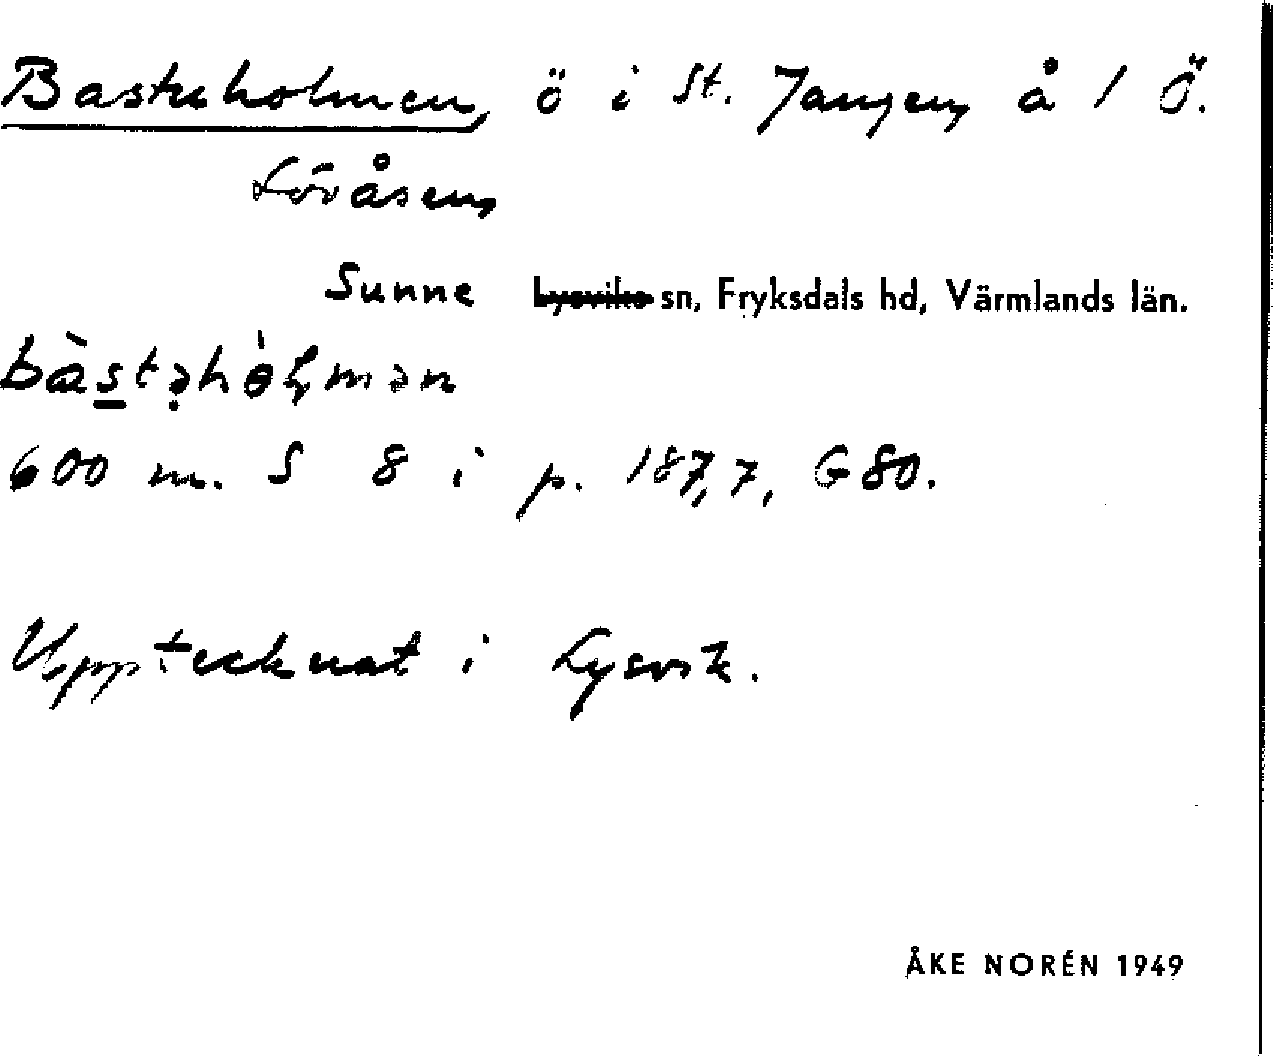 Bastuholmen, ö i St. Jangen, å / Ö.
Lövåsen,
Sunne Lysviks sn, Fryksdals hd, Värmlands län.
600 m. S 8 i p. 187,7, G 80.
Upptecknat i Lysvik.
ÅKE NORÉN 1949